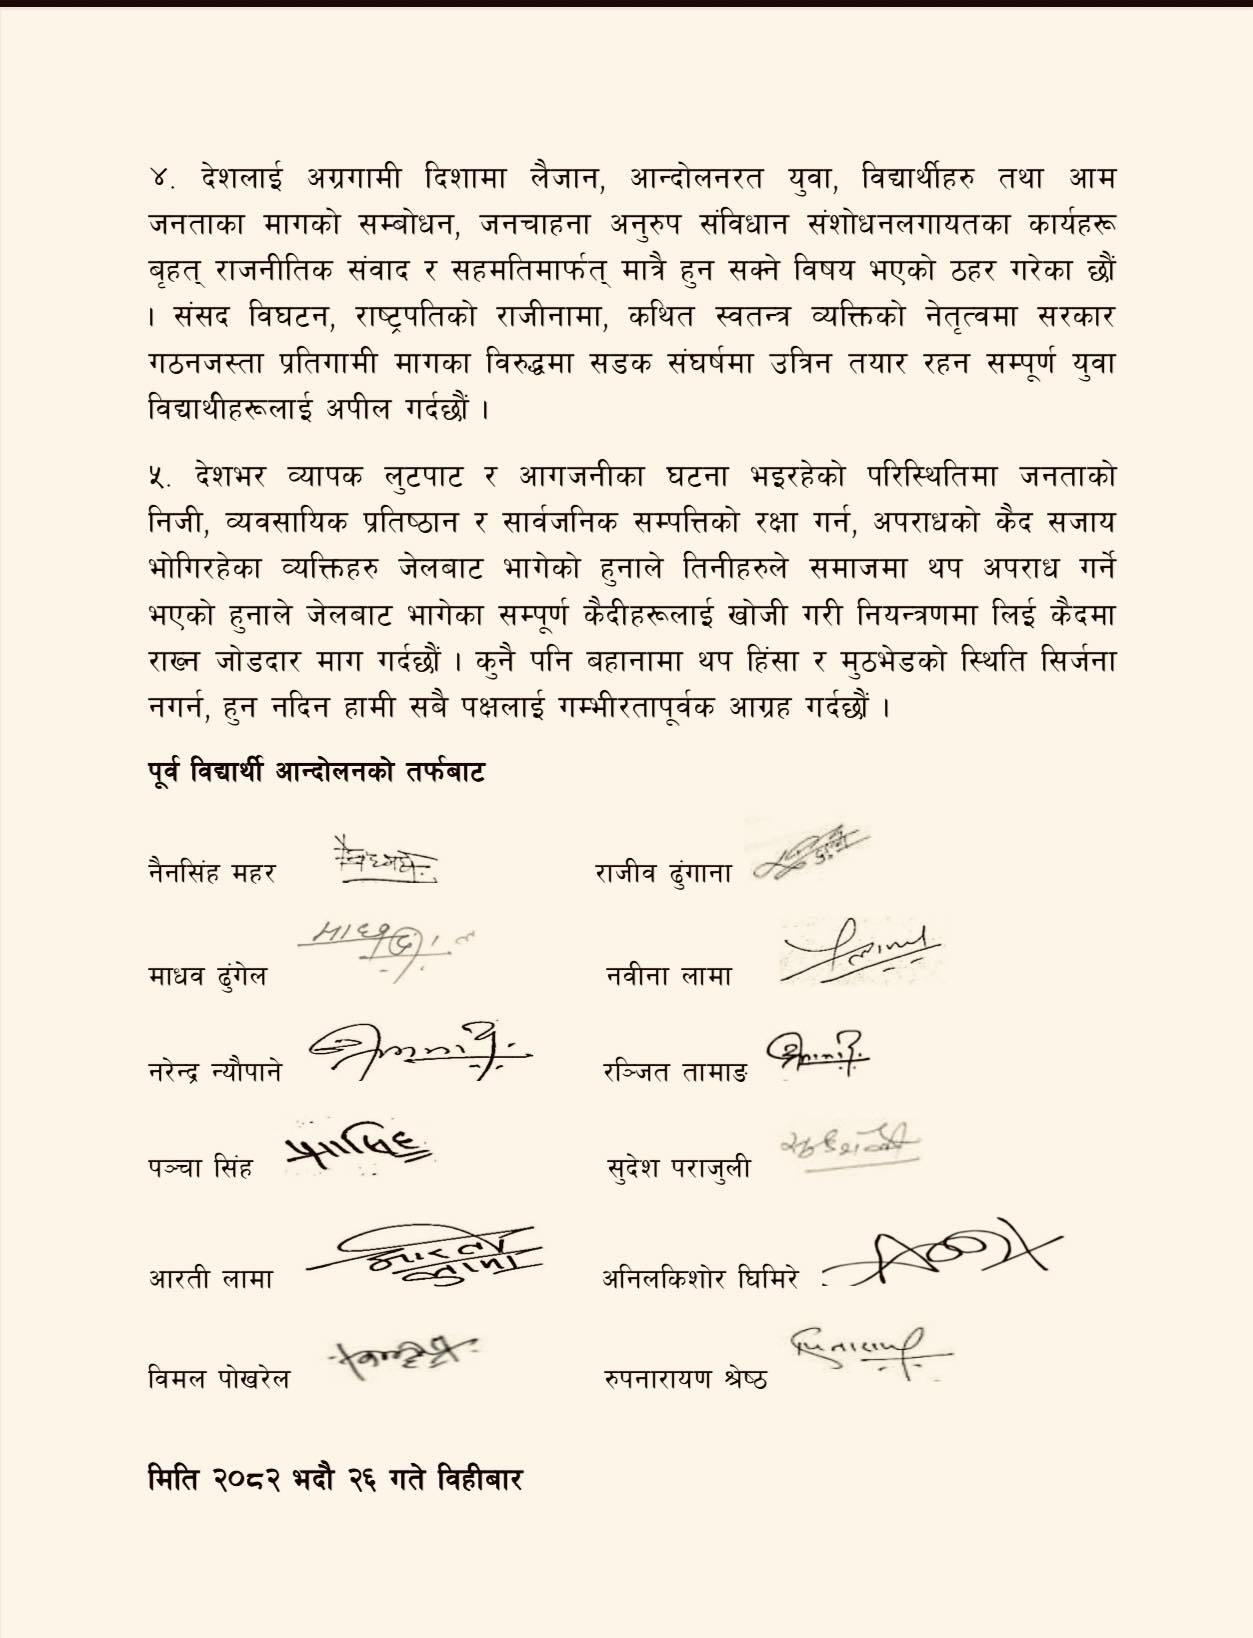 ४. देशलाई अग्रगामी दिशामा लैजान, आन्दोलनरत युवा, विद्यार्थीहरु तथा आम
जनताका मागको सम्बोधन, जनचाहना अनुरुप संविधान संशोधनलगायतका कार्यहरू
बृहत् राजनीतिक संवाद र सहमतिमार्फत् मात्रै हुन सक्ने विषय भएको ठहर गरेका छौं
। संसद विघटन, राष्ट्रपतिको राजीनामा, कथित स्वतन्त्र व्यक्तिको नेतृत्वमा सरकार
गठनजस्ता प्रतिगामी मागका विरुद्धमा सडक संघर्षमा उत्रिन तयार रहन सम्पूर्ण युवा
विद्यार्थीहरूलाई अपील गर्दछौं ।
५. देशभर व्यापक लुटपाट र आगजनीका घटना भइरहेको परिस्थितिमा जनताको
निजी, व्यवसायिक प्रतिष्ठान र सार्वजनिक सम्पत्तिको रक्षा गर्न, अपराधको कैद सजाय
भोगिरहेका व्यक्तिहरु जेलबाट भागेको हुनाले तिनीहरुले समाजमा थप अपराध गर्ने
भएको हुनाले जेलबाट भागेका सम्पूर्ण कैदीहरूलाई खोजी गरी नियन्त्रणमा लिई कैदमा
राख्न जोडदार माग गर्दछौं । कुनै पनि बहानामा थप हिंसा र मुठभेडको स्थिति सिर्जना
नगर्न, हुन नदिन हामी सबै पक्षलाई गम्भीरतापूर्वक आग्रह गर्दछौं ।
पूर्व विद्यार्थी आन्दोलनको तर्फबाट
नैनसिंह महर राजीव ढुंगाना
माधव ढुंगेल नवीना लामा
नरेन्द्र न्यौपाने रञ्जित तामाङ
पञ्चा सिंह सुदेश पराजुली
आरती लामा अनिलकिशोर घिमिरे
विमल पोखरेल रुपनारायण श्रेष्ठ
मिति २०८२ भदौ २६ गते विहीबार